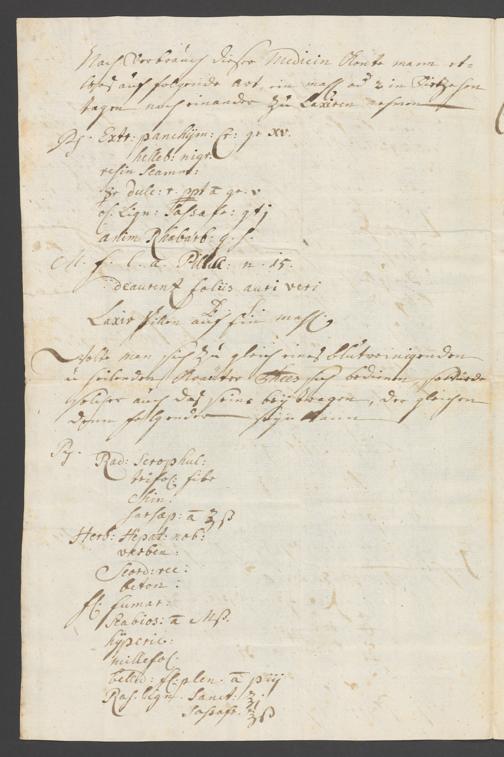 Nach Verbrauch dieser Medicin Könte mann et-
was auf folgende art, ein mahl od 2 in Viertzehen
tagen nach einander zu Laxiren nehmen
Rx. Extr: panchÿm: Cr: gr XV.
helleb: nigr.
resin Scamm:
☿ dulc: r. ppt ā gr. v
ol: Lign: Sassafr: gtj
anim Rhabarb: q. s.
M. f. l. a. Pillul: n. 15.
deaurent foliis auri veri
D. S.
Laxir Pillen auf ein mahl
Wolte man sich zu gleich eines blutreinigenden
u heilenden Kräuter Thees sich bedienen, so würde
solcher auch das seine beÿtragen, der gleichen
denn folgender seÿn kann
Rx.
Rad: Scrophul:
trifol: fibr
Chin:
sarsap: ā ℥ß
Herb: Hepat: nob:
verben:
Scord: rec:
beton:
fl: fumar:
Scabios: ā Mß.
hÿperic:
millefol:
bellid: fl: plen. ā pij
Ras: lign: Sanct: ℥j.
Sassafr. ℥ß